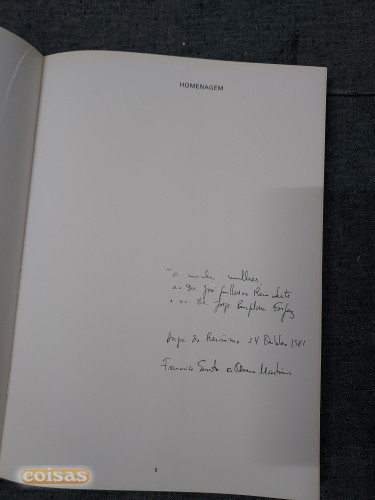 HOMENAGEM
"à minha mulher,
ao Dr. José Guilherme Reis Leite
e ao Dr. Jorge
Angra do Heroísmo 14 Outubro 1981
Francisco Ernesto de Oliveira Martins
5
coisas